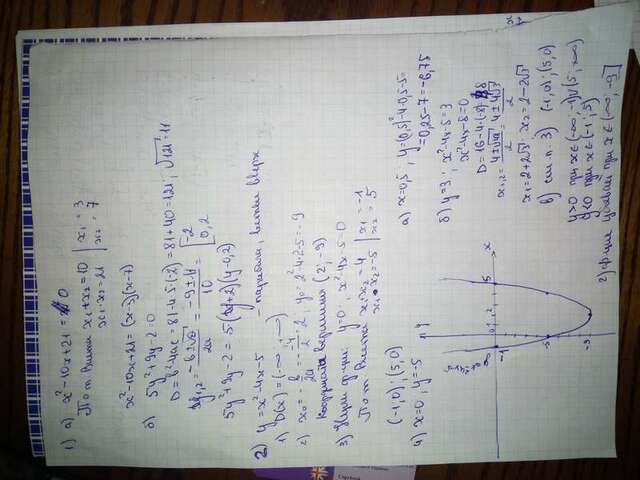 1) а) x² - 10x + 21 = 0
По т. Виета x₁ + x₂ = 10 | x₁ = 3
x₁ · x₂ = 21 | x₂ = 7
x² - 10x + 21 = (x - 3)(x - 7)
б) 5y² + 9y - 2 = 0
D = b² - 4ac = 81 - 4·5·(-2) = 81 + 40 = 121; √121 = 11
y₁,₂ = (-b ± √D)/2a = (-9 ± 11)/10 = [-2
0,2
5y² + 9y - 2 = 5(y + 2)(y - 0,2)
2) y = x² - 4x - 5 - парабола, ветви вверх
1) D(x) = (-∞; +∞)
2) x₀ = -b/2a = - -4/2 = 2, y₀ = 2² - 4·2 - 5 = -9
Координаты вершины (2; -9)
3) Нули ф-ции: y = 0; x² - 4x - 5 = 0
По т. Виета x₁ x₂ = 4 | x₁ = -1
x₁ · x₂ = -5 | x₂ = 5
(-1, 0); (5, 0)
4) x = 0, y = -5
y
x
-1
0
1
2
5
-5
-9
а) x = 0,5; y = (0,5)² - 4·0,5 - 5 =
= 0,25 - 7 = -6,75
б) y = 3; x² - 4x - 5 = 3
x² - 4x - 8 = 0
D = 16 - 4·(-8) = 48
x₁,₂ = (4 ± √48)/2 = (4 ± 4√3)/2
x₁ = 2 + 2√3 x₂ = 2 - 2√3
в) см. п. 3) (-1, 0); (5, 0)
y > 0 при x ∈ (-∞; -1) ∪ (5; +∞)
y < 0 при x ∈ (-1; 5)
г) ф-ция убывает при x ∈ (-∞; -9]